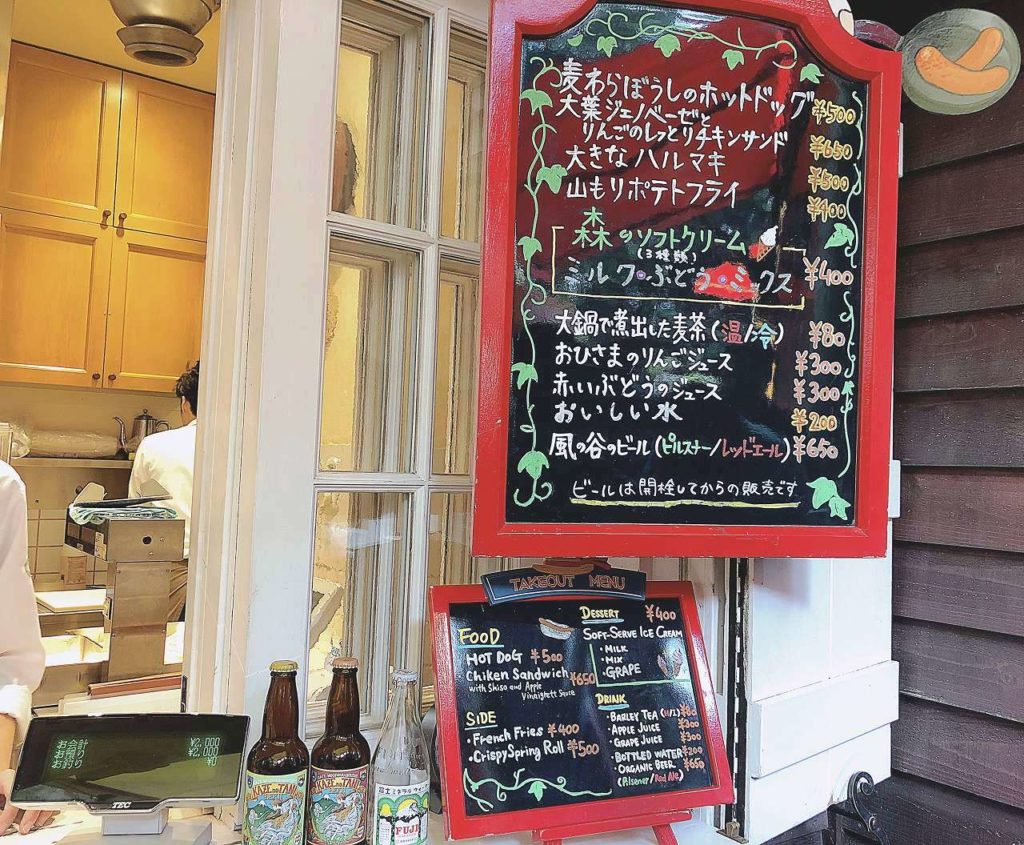 麦わらぼうしのホットドッグ ¥500
大葉ジェノベーゼと
りんごのしっとりチキンサンド ¥650
大きなハルマキ ¥500
山もりポテトフライ ¥400
森のソフトクリーム
(3種類)
ミルク・ぶどう・ミックス ¥400
大鍋で煮出した麦茶(温/冷) ¥80
おひさまのりんごジュース ¥300
赤いぶどうのジュース ¥300
おいしい水 ¥200
風の谷のビール(ピルスナー/レッドエール) ¥650
ビールは開栓してからの販売です
TAKEOUT MENU
FOOD
HOT DOG ¥500
Chiken Sandwich ¥650
with Shiso and Apple
Vinaigrett Sauce
SIDE
・French Fries ¥400
・Crispy Spring Roll ¥500
DESSERT ¥400
SOFT-SERVE ICE CREAM
・MILK
・MIX
・GRAPE
DRINK
・BARLEY TEA (H/I) ¥80
・APPLE JUICE ¥300
・GRAPE JUICE ¥300
・BOTTLED WATER ¥200
・ORGANIC BEER ¥650
(Pilsener/Red Ale)
お会計 ¥2,000
お預り ¥2,000
お釣り ¥0
TEC
KAZE no TANI
KAZE no TANI
富士ミネラルウォーター
FUJI